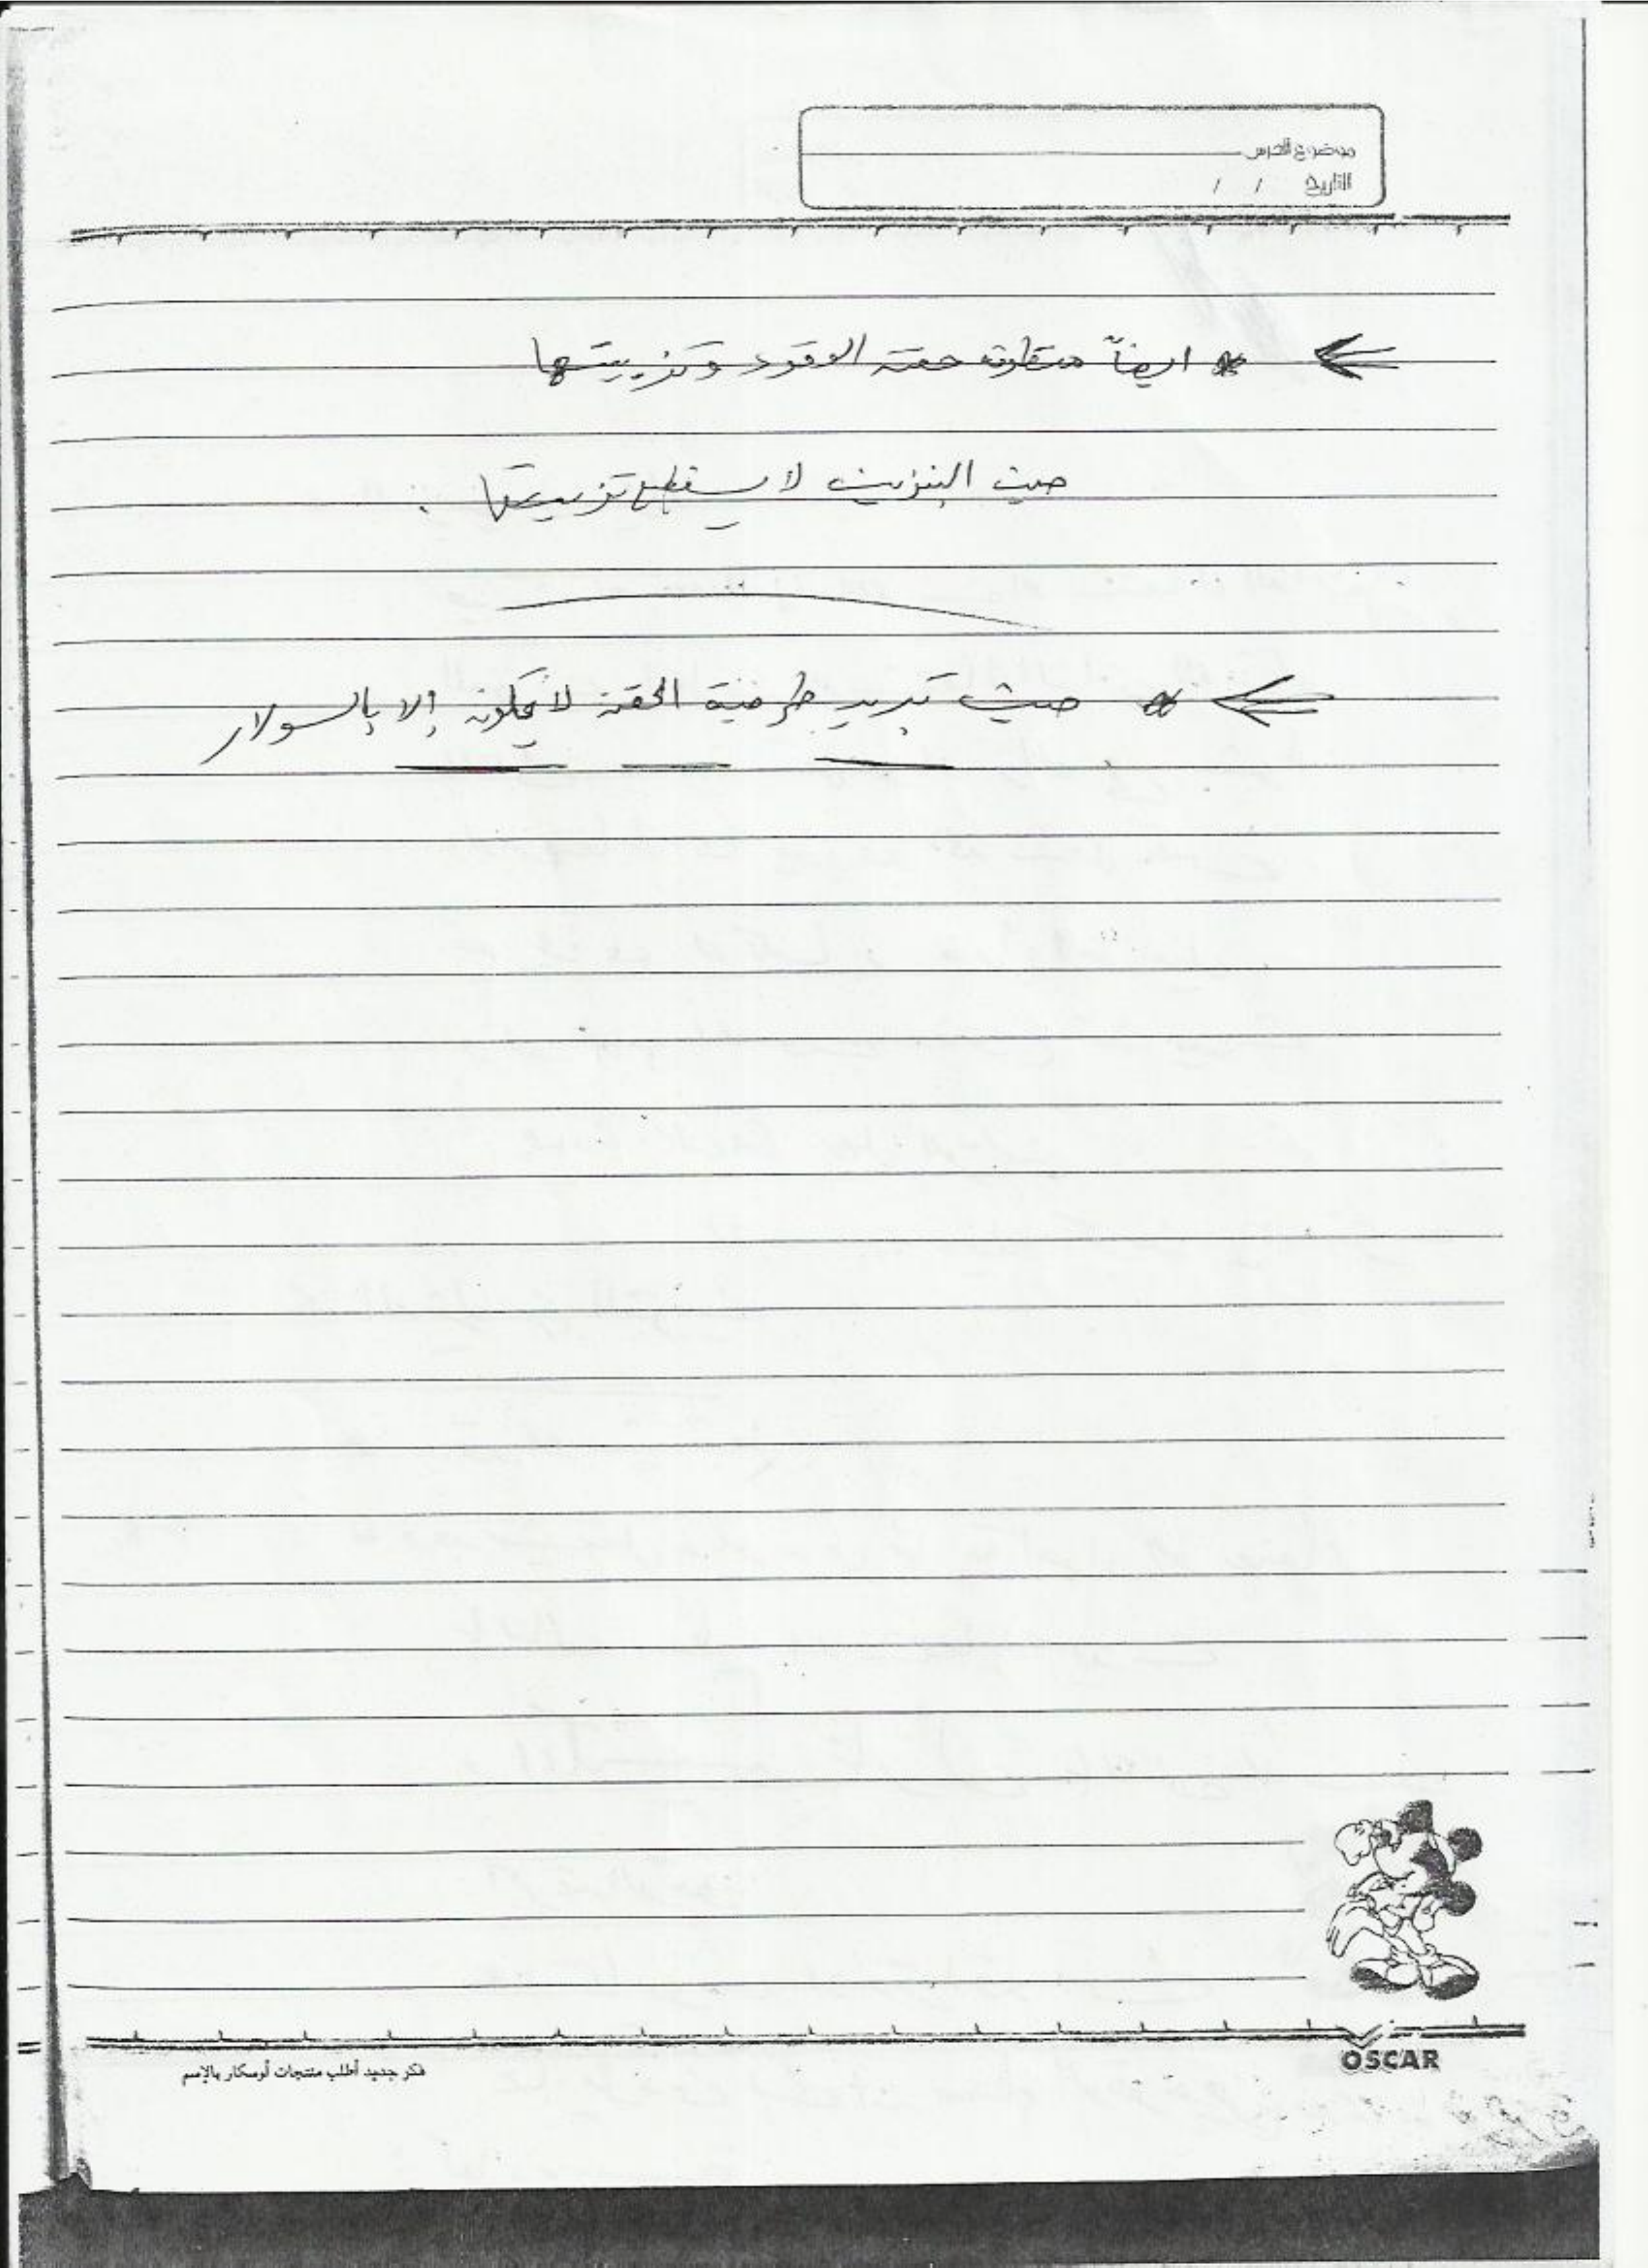 موضوع الدرس
التاريخ / /
* ايضاً حقن الوقود وتزييتها
حيث البنزين لا يستطيع تزييتها .
* حيث تبريد طرمبة الحقن لا يكون إلا بالسولار
OSCAR
فكر جديد أطلب منتجات أوسكار بالإسم